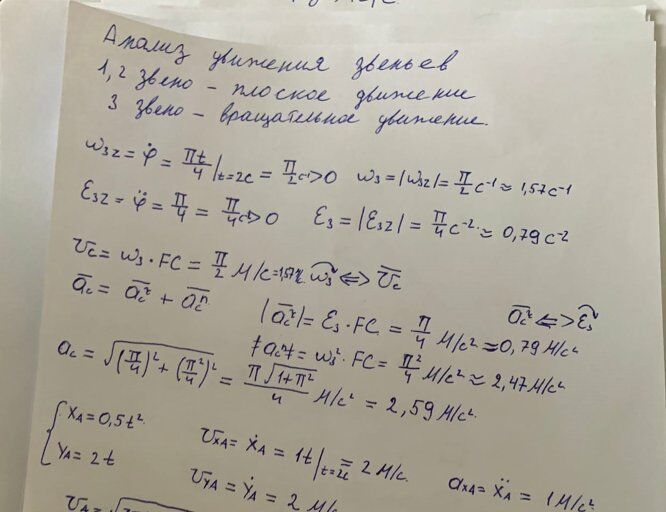 Анализ движения звеньев
1,2 звено – плоское движение
3 звено – вращательное движение.
ω₃z = φ̇ = πt/4 |t=2c = π/2 c⁻¹ > 0 ω₃ = |ω₃z| = π/2 c⁻¹ ≈ 1,57c⁻¹
ε₃z = φ̈ = π/4 = π/4 c⁻² > 0 ε₃ = |ε₃z| = π/4 c⁻² ≈ 0,79 c⁻²
v̄c = ω₃ · FC = π/2 м/с = 1,57 ω₃ <=> v̄c
āc = āc^τ + āc^n |āc^τ| = ε₃ · FC = π/4 м/с² ≈ 0,79 м/с² āc^τ <=> ε₃
|ac^n| = ω₃² · FC = π²/4 м/с² ≈ 2,47 м/с²
ac = √((π/4)² + (π²/4)²) = π√(1+π²)/4 м/с² = 2,59 м/с²
{ xA = 0,5t² vxA = ẋA = 1t |t=2c = 2 м/с. axA = ẍA = 1 м/с²
yA = 2t vyA = ẏA = 2 м/с
vA = √